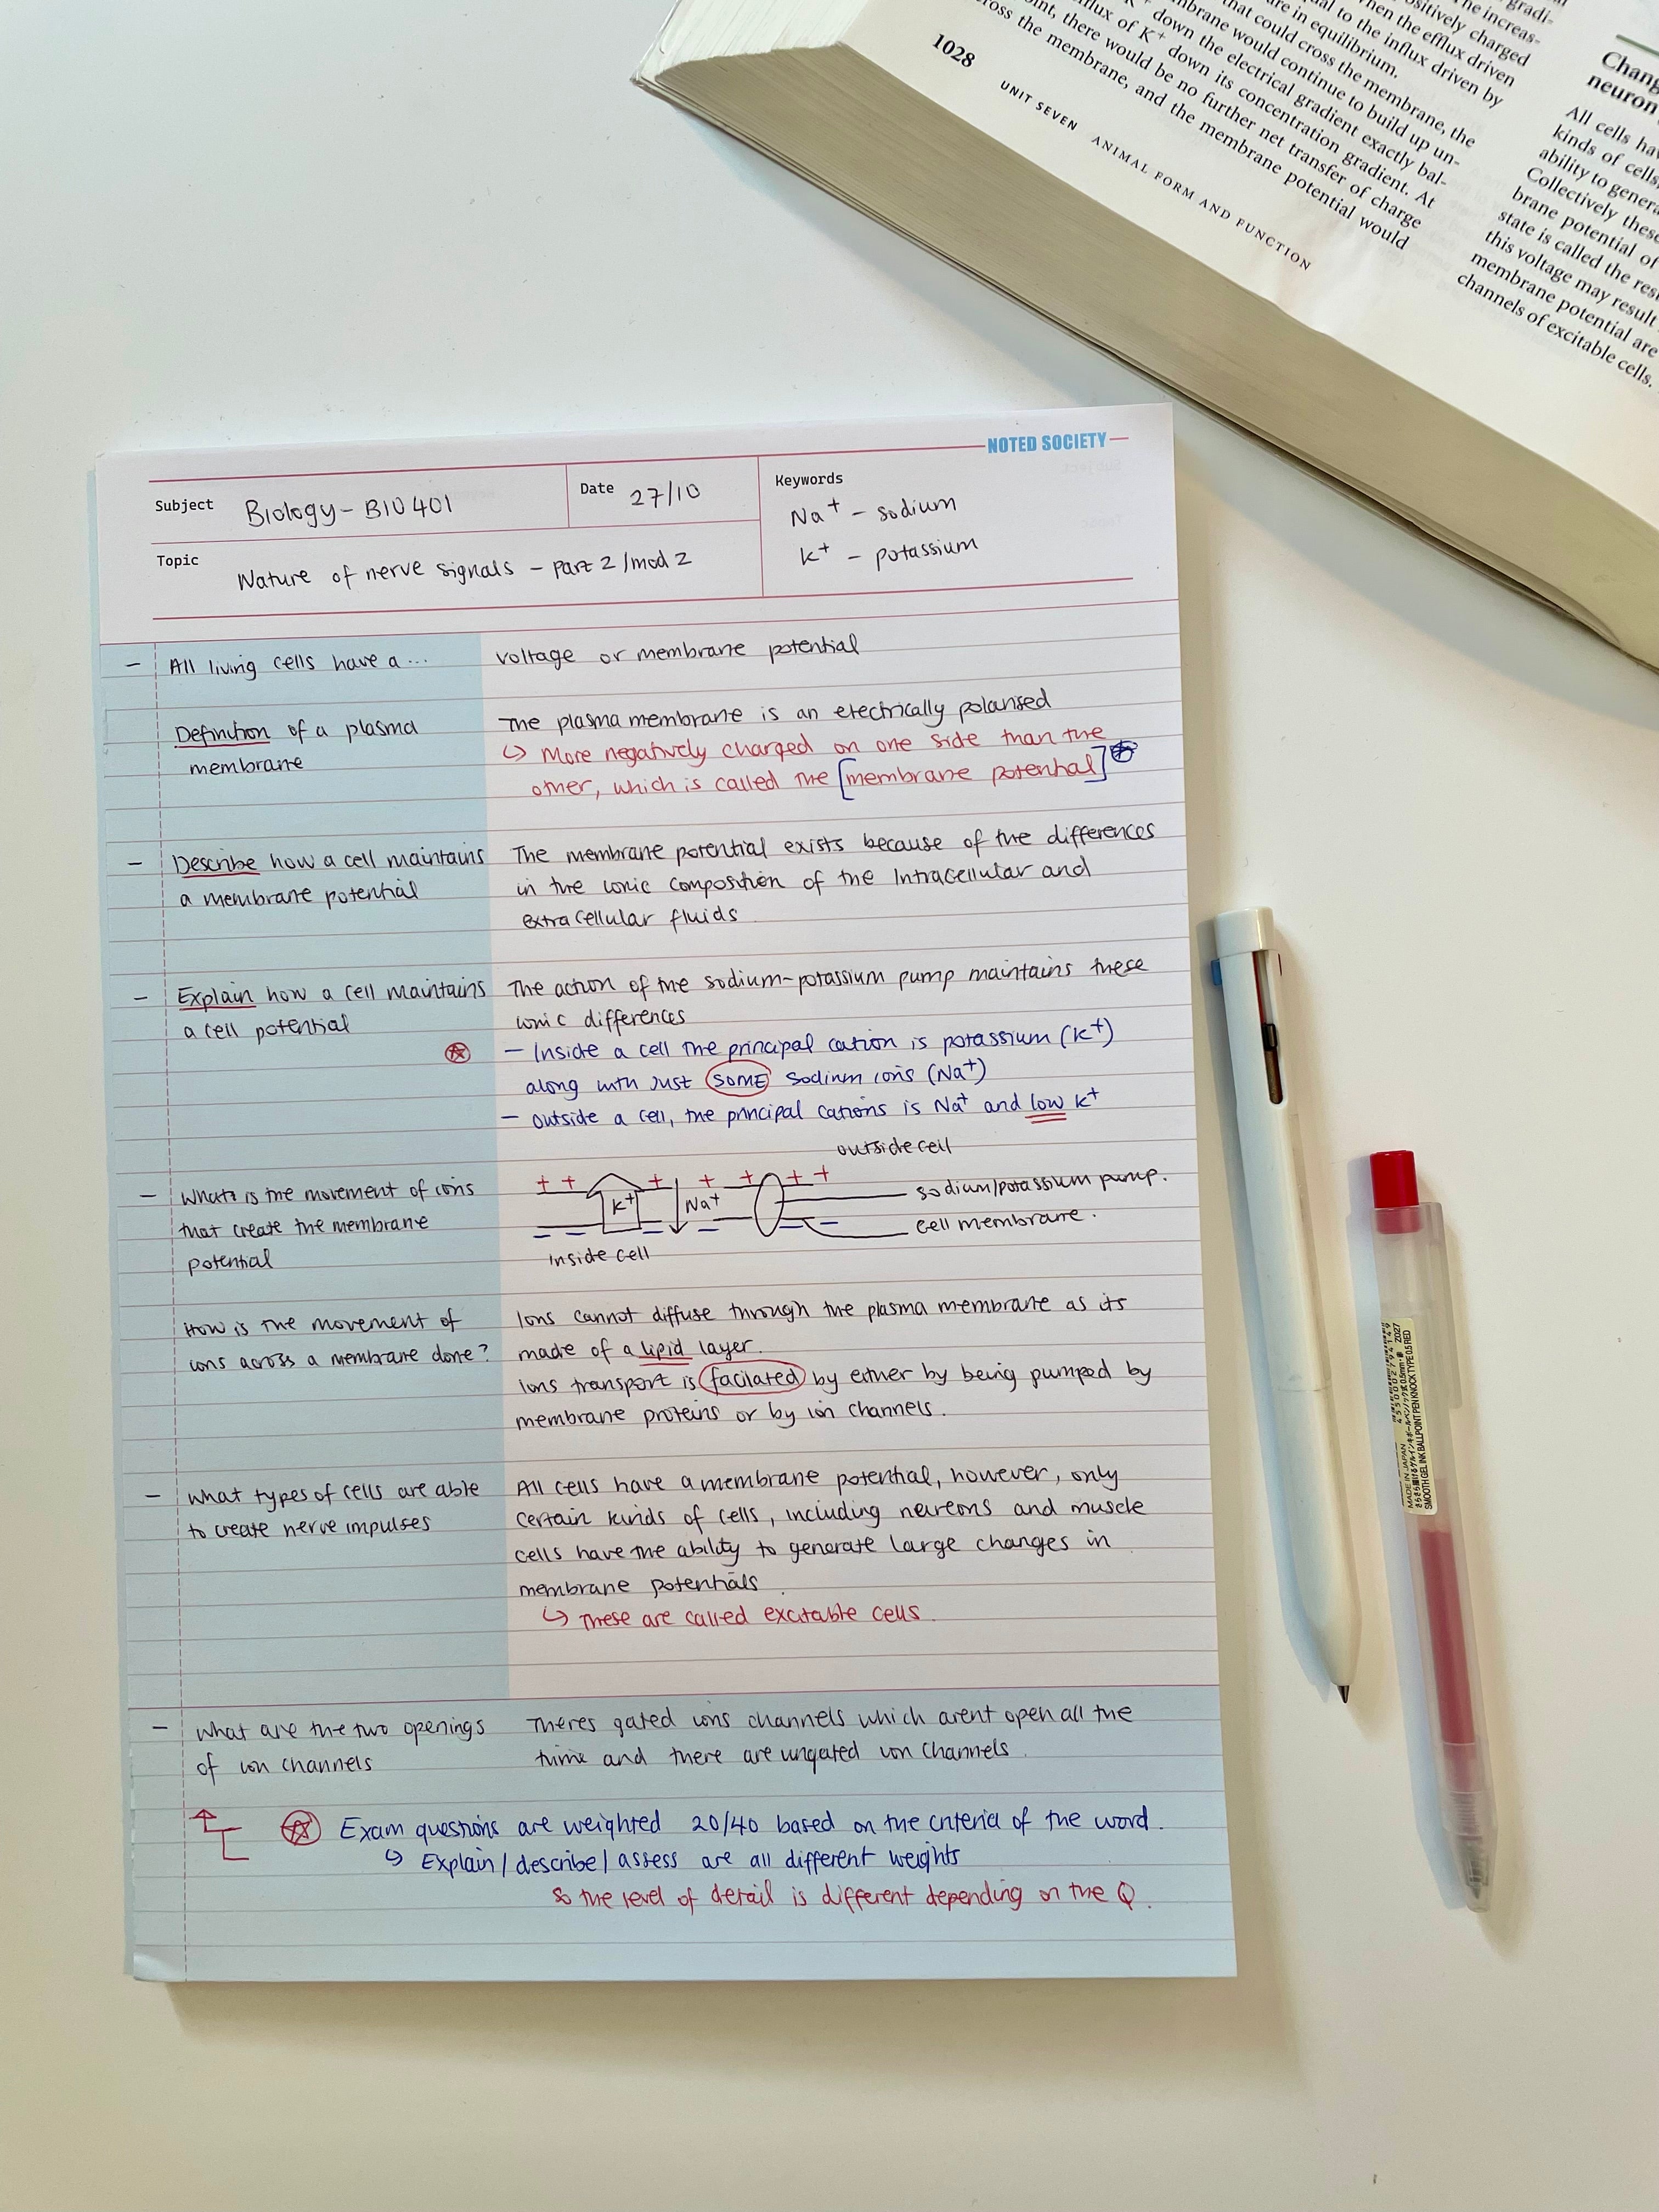 The increas-
gradi-
ositively charged
hen the efflux driven
ual to the influx driven by
are in equilibrium.
that could cross the membrane, the
mbrane would continue to build up un-
K+ down the electrical gradient exactly bal-
flux of K+ down its concentration gradient. At
oint, there would be no further net transfer of charge
ross the membrane, and the membrane potential would
1028
UNIT SEVEN ANIMAL FORM AND FUNCTION
Chang
neuron
All cells hav
kinds of cells,
ability to genera
Collectively these
brane potential of
state is called the res
this voltage may result
membrane potential are
channels of excitable cells.
NOTED SOCIETY
Subject Biology - BIO 401
Date 27/10
Keywords
Na+ - sodium
K+ - potassium
Topic
Nature of nerve signals - part 2/mod 2
- All living cells have a... voltage or membrane potential
Definition of a plasma The plasma membrane is an electrically polarised
membrane ↳ More negatively charged on one side than the
other, which is called the [membrane potential]
- Describe how a cell maintains The membrane potential exists because of the differences
a membrane potential in the ionic composition of the intracellular and
extracellular fluids.
- Explain how a cell maintains The action of the sodium-potassium pump maintains these
a cell potential ionic differences
- Inside a cell the principal cation is potassium (K+)
along with just SOME sodium ions (Na+)
- outside a cell, the principal cations is Na+ and low K+
outside cell
- What is the movement of ions
that create the membrane
potential
+ + + + + + +
K+ Na+ sodium/potassium pump.
cell membrane.
inside cell
How is the movement of Ions cannot diffuse through the plasma membrane as its
ions across a membrane done? made of a lipid layer.
Ions transport is facilated by either by being pumped by
membrane proteins or by ion channels.
- what types of cells are able All cells have a membrane potential, however, only
to create nerve impulses certain kinds of cells, including neurons and muscle
cells have the ability to generate large changes in
membrane potentials.
↳ These are called excitable cells.
- what are the two openings Theres gated ions channels which arent open all the
of ion channels time and there are ungated ion channels.
Exam questions are weighted 20/40 based on the criteria of the word.
↳ Explain/describe/assess are all different weights
so the level of detail is different depending on the Q.
MADE IN JAPAN
SMOOTH GEL INK BALLPOINT PEN KNOCK TYPE 0.5 RED